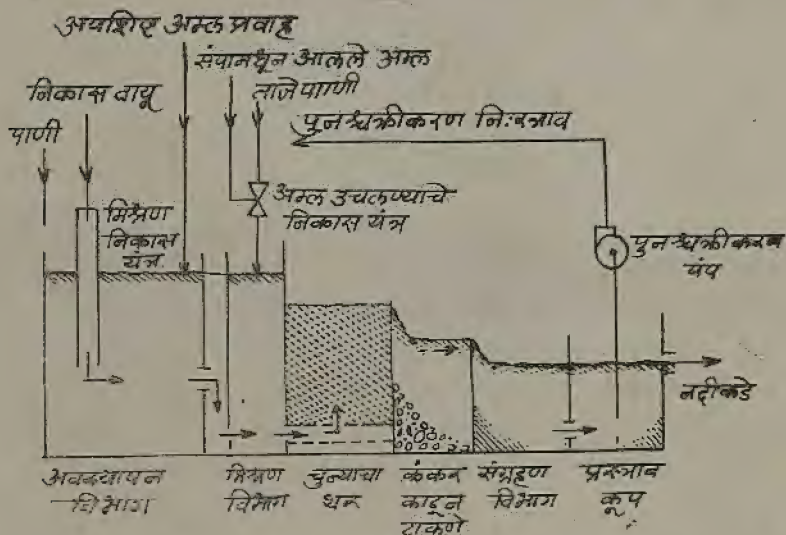 अवशिष्ट अम्ल प्रवाह
संपामधून आलले अम्ल
निकास वायू
ताजे पाणी
पुनश्चक्रीकरण निःस्त्राव
पाणी
मिश्रण
निकास
यंत्र
अम्ल उचलण्याचे
निकास यंत्र
पुनश्चक्रीकरण
पंप
नदीकडे
अवस्थापन
विभाग
मिश्रण
विभाग
चुन्याचा
थर
कंकर
काढून
टाकणे
संग्रहण
विभाग
प्रस्त्राव
कूप